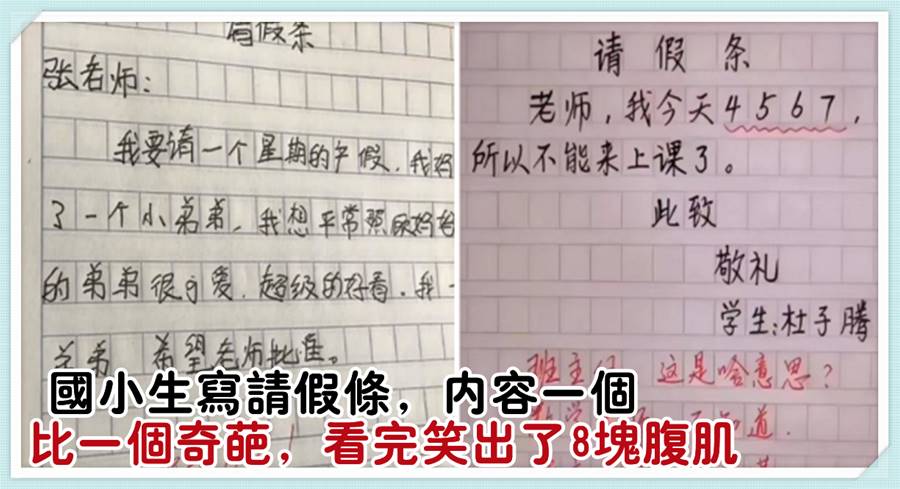 请假条
张老师：
我要请一个星期的产假，我妈
了一个小弟弟，我想平常照顾妈妈
的弟弟很可爱，超级的好看，我一
弟弟，希望老师批准。
请假条
老师，我今天4567，
所以不能来上课了。
此致
敬礼
学生：杜子腾
班主任 这是啥意思？
数学 道.
國小生寫請假條，內容一個
比一個奇葩，看完笑出了8塊腹肌